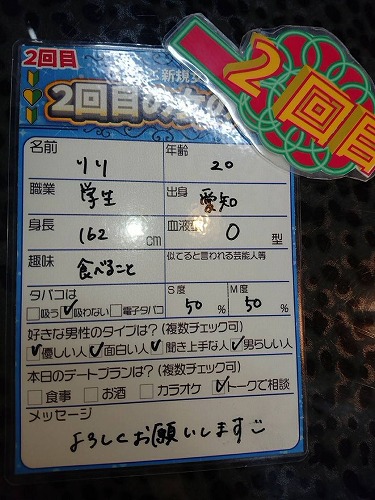 2回目
新規
2回目の方
2回目
名前 りり 年齢 20
職業 学生 出身 愛知
身長 162 cm 血液型 O 型
趣味 食べること 似てると言われる芸能人等
タバコは S度 M度
□吸う ☑吸わない □電子タバコ 50 % 50 %
好きな男性のタイプは?(複数チェック可)
☑優しい人 ☑面白い人 ☑聞き上手な人 ☑男らしい人
本日のデートプランは?(複数チェック可)
□食事 □お酒 □カラオケ ☑トークで相談
メッセージ
よろしくお願いします